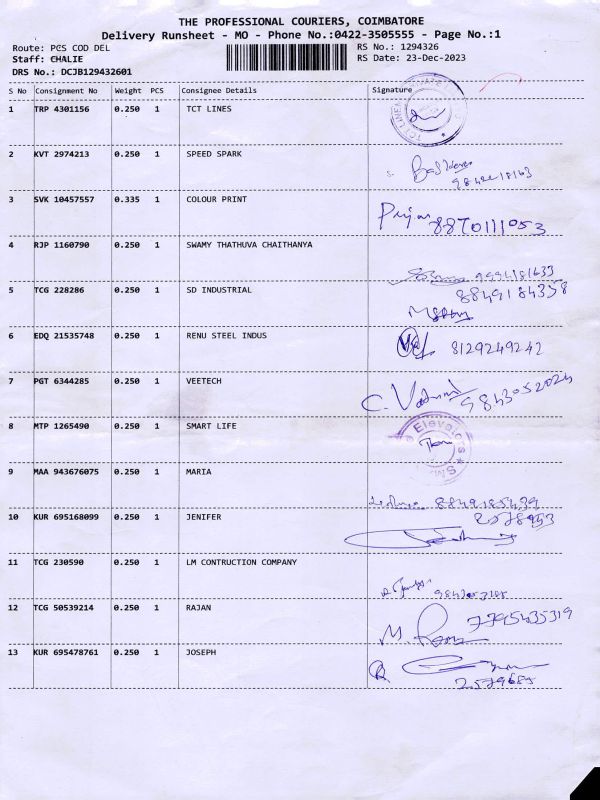 THE PROFESSIONAL COURIERS, COIMBATORE
Delivery Runsheet - MO - Phone No.:0422-3505555 - Page No.:1
Route: PCS COD DEL RS No.: 1294326
Staff: CHALIE RS Date: 23-Dec-2023
DRS No.: DCJB129432601
S No Consignment No Weight PCS Consignee Details Signature
1 TRP 4301156 0.250 1 TCT LINES
2 KVT 2974213 0.250 1 SPEED SPARK
3 SVK 10457557 0.335 1 COLOUR PRINT
8870111053
4 RJP 1160790 0.250 1 SWAMY THATHUVA CHAITHANYA
5 TCG 228286 0.250 1 SD INDUSTRIAL
8849184358
6 EDQ 21535748 0.250 1 RENU STEEL INDUS
8129249242
7 PGT 6344285 0.250 1 VEETECH
9843052024
8 MTP 1265490 0.250 1 SMART LIFE
Elevators
9 MAA 943676075 0.250 1 MARIA
10 KUR 695168099 0.250 1 JENIFER
11 TCG 230590 0.250 1 LM CONTRUCTION COMPANY
12 TCG 50539214 0.250 1 RAJAN
7795435319
13 KUR 695478761 0.250 1 JOSEPH